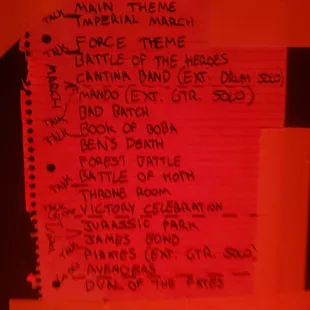 TALK MAIN THEME
IMPERIAL MARCH
TALK FORCE THEME
BATTLE OF THE HEROES
CANTINA BAND (EXT. DRUM SOLO)
MARCH MANDO (EXT. GTR. SOLO)
BAD BATCH
TALK BOOK OF BOBA
TALK BEN'S DEATH
FOREST BATTLE
TALK BATTLE OF HOTH
THRONE ROOM
TALK VICTORY CELEBRATION
JURASSIC PARK
JAMES BOND
TALK PIRATES (EXT. GTR. SOLO)
AVENGERS
DUAL OF THE FATES